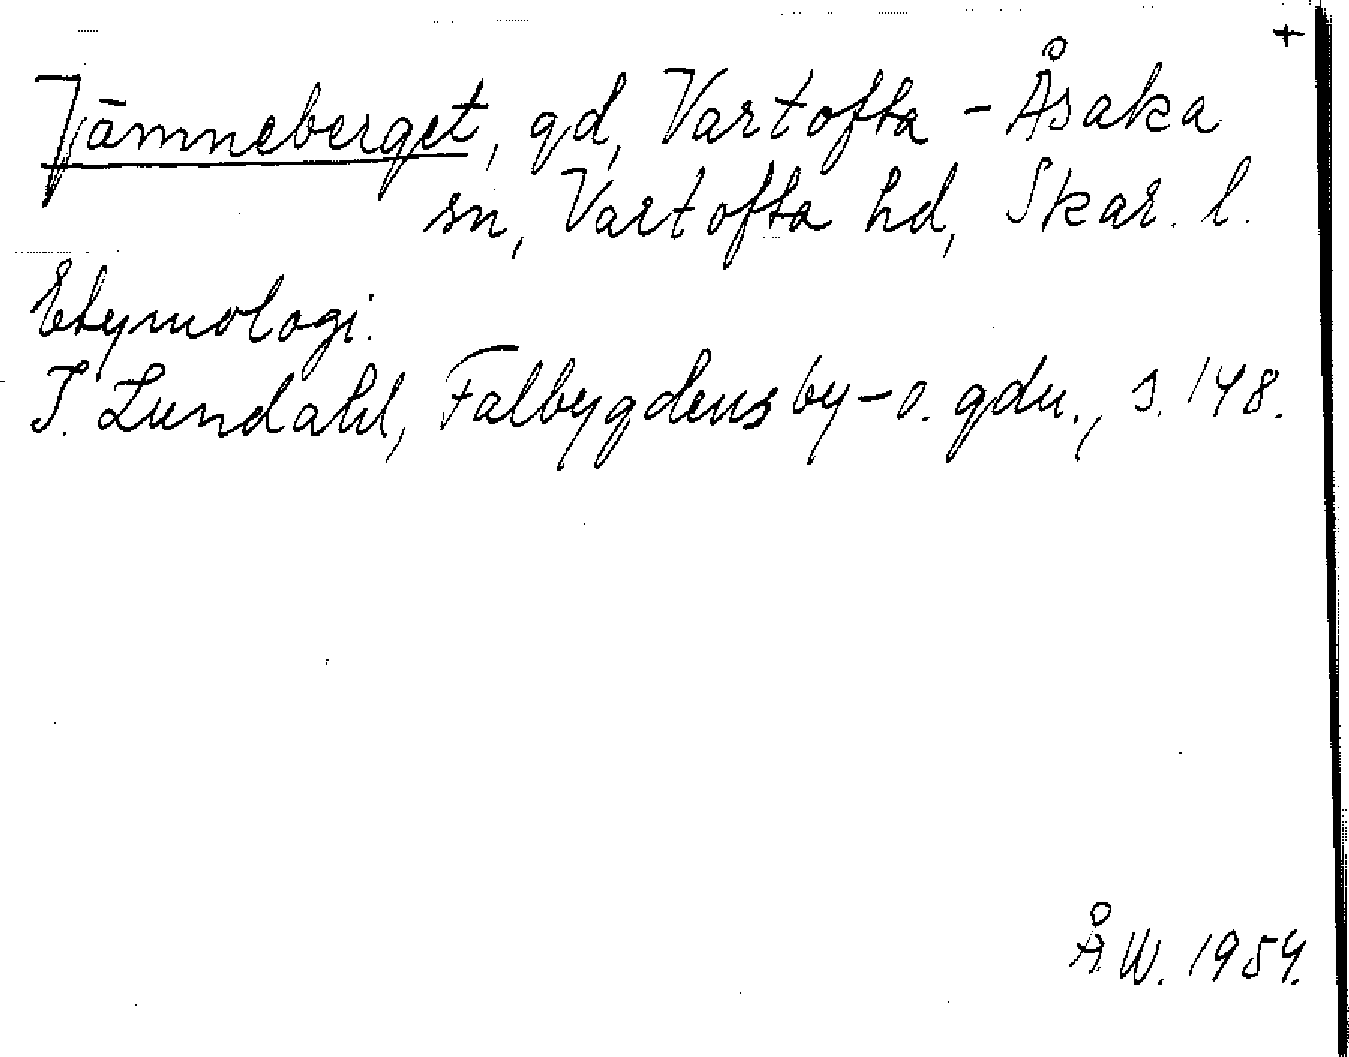 +
Tjämneberget, gd, Vartofta - Åsaka
sn, Vartofta hd, Skar. l.
Etymologi.
I. Lundahl, Falbygdens by- o. gdn., s. 148.
ÅW. 1954.